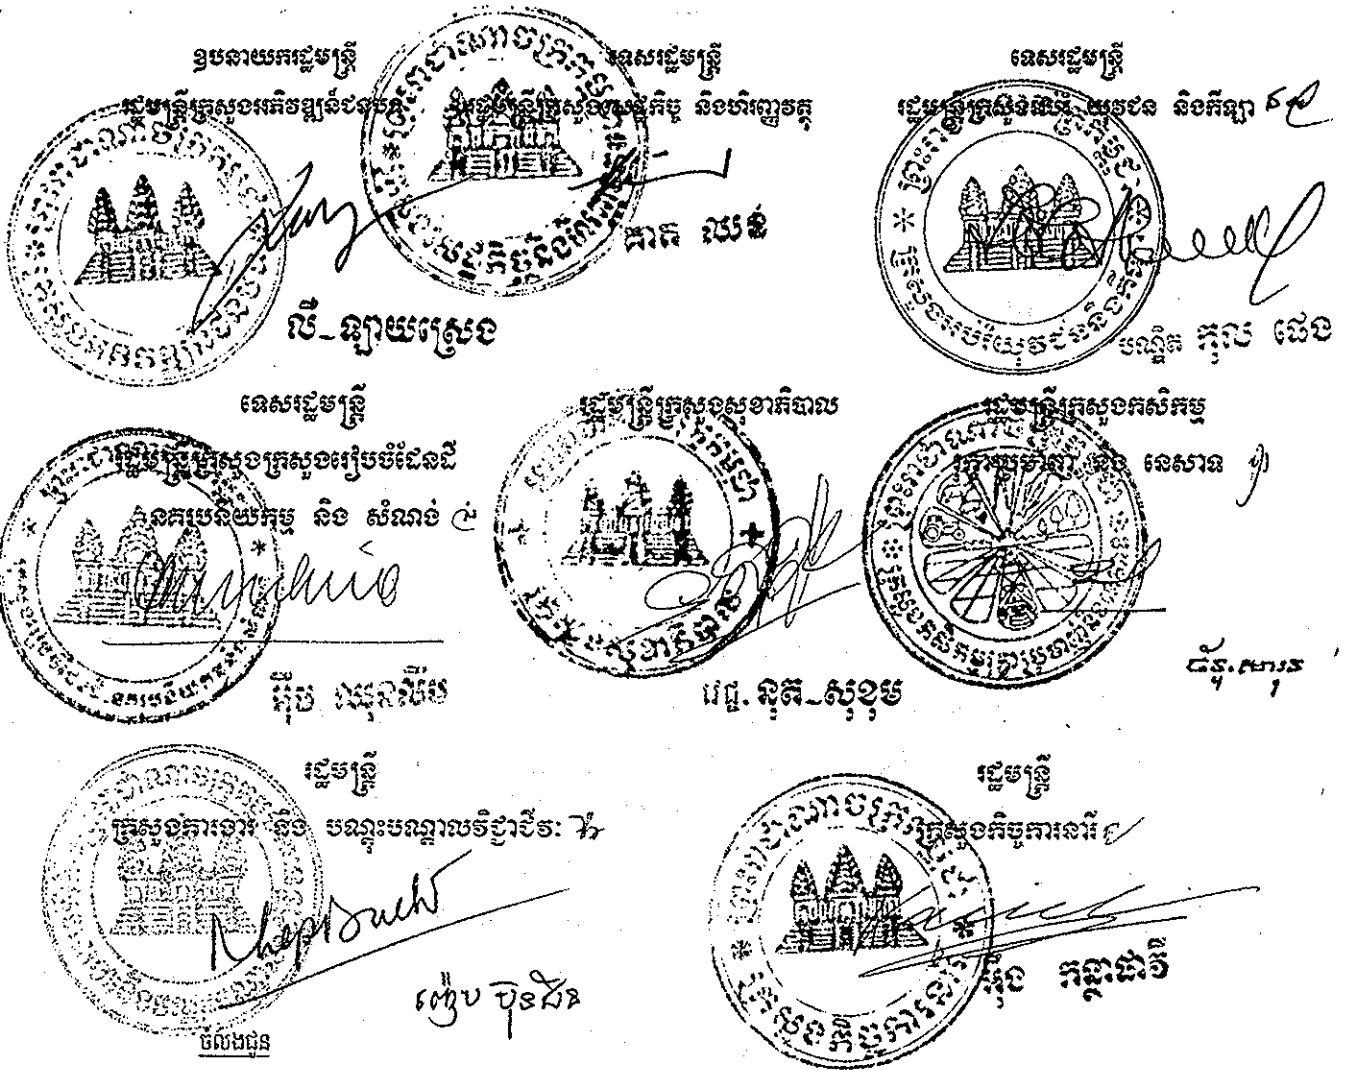 ឧបនាយករដ្ឋមន្ត្រី
រដ្ឋមន្ត្រីក្រសួងអភិវឌ្ឍន៍ជនបទ
លី_ឡាយស្រេង
ទេសរដ្ឋមន្ត្រី
រដ្ឋមន្ត្រីក្រសួងសេដ្ឋកិច្ច និងហិរញ្ញវត្ថុ
គាត ឈន់
ទេសរដ្ឋមន្ត្រី
រដ្ឋមន្ត្រីក្រសួងអប់រំ យុវជន និងកីឡា
បណ្ឌិត កុល ផេង
ទេសរដ្ឋមន្ត្រី
រដ្ឋមន្ត្រីក្រសួងក្រសួងរៀបចំដែនដី
នគរូបនីយកម្ម និង សំណង់
អ៊ឹម ឈុនលឹម
រដ្ឋមន្ត្រីក្រសួងសុខាភិបាល
វេជ្ជ. នុត_សុខុម
រដ្ឋមន្ត្រីក្រសួងកសិកម្ម
រុក្ខាប្រមាញ់ និង នេសាទ
ច័ន្ទ.សារុន
រដ្ឋមន្ត្រី
ក្រសួងការងារ និង បណ្តុះបណ្តាលវិជ្ជាជីវៈ
ញ៉េប ប៊ុនជិន
រដ្ឋមន្ត្រី
ក្រសួងកិច្ចការនារី
អ៊ឹង កន្ថាផាវី
ចំលងជូន